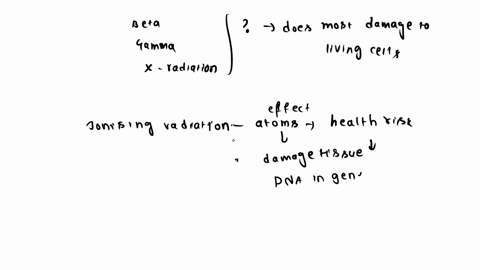 Beta
Gamma
X-radiation
? → does most damage to
living cells
effect
Ionising radiation — atoms → health risk
↓
damage tissue ↓
DNA in gen